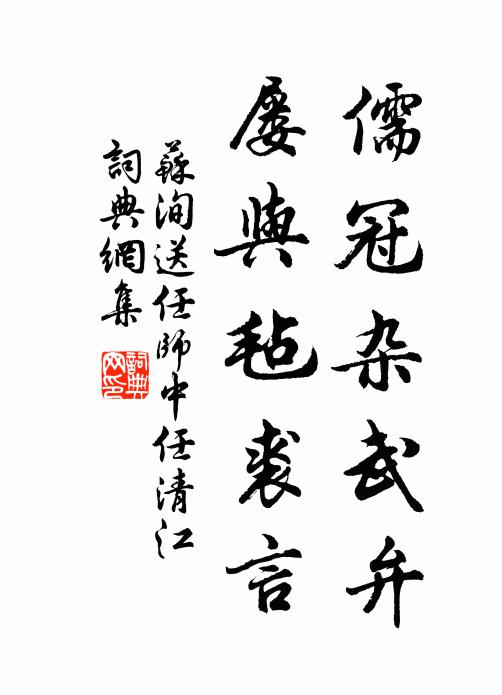 儒冠杂武弁
屡與毡裘言
蘇洵送任師中任清江
詞典網集
詞典
网印